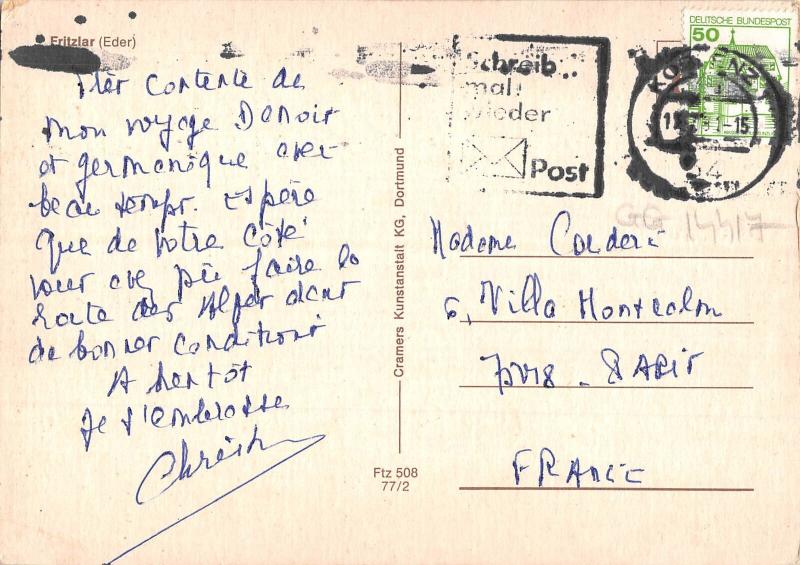 Fritzlar (Eder)
Très contente de
mon voyage Danois
et germanique avec
beau temps. Espère
que de votre côté
vous avez pu faire la
route des Alpes dans
de bonnes conditions
A bientôt
Je t'embrasse
Cramers Kunstanstalt KG, Dortmund
Ftz 508
77/2
Schreib
mal
wieder
Post
KOBLENZ
-15
DEUTSCHE BUNDESPOST
50
GG 14417
Madame
6, Villa Montcalm
75018 - PARIS
FRANCE